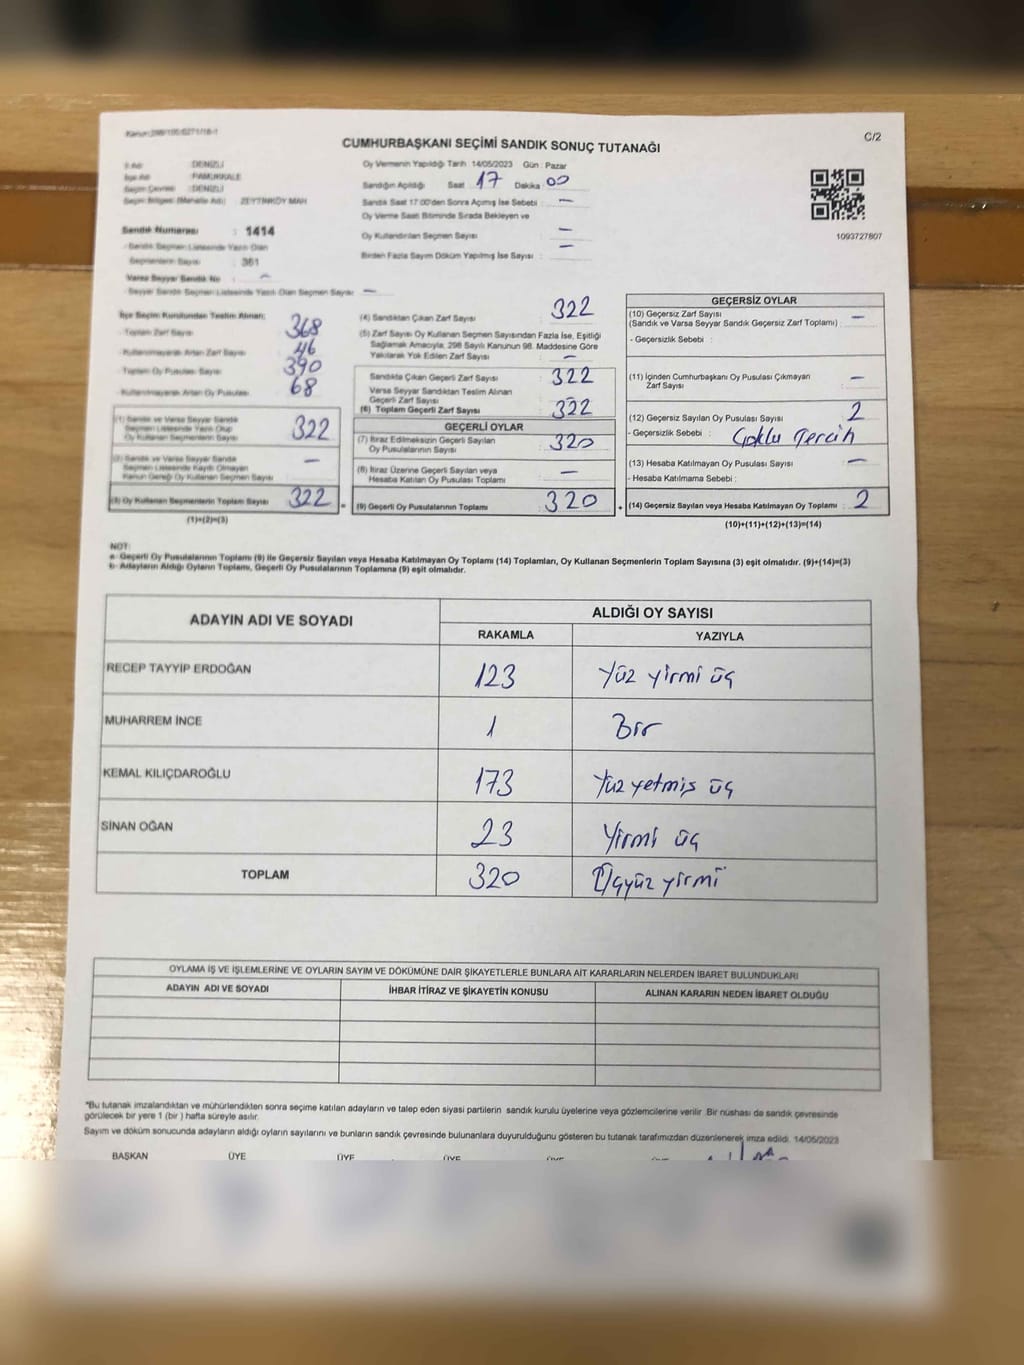 Kanun:298/105/6271/18-1
C/2
CUMHURBAŞKANI SEÇİMİ SANDIK SONUÇ TUTANAĞI
İl Adı : DENİZLİ
İlçe Adı : PAMUKKALE
Seçim Çevresi : DENİZLİ
Seçim Bölgesi (Mahalle Adı) ZEYTİNKÖY MAH
Sandık Numarası : 1414
Sandık Seçmen Listesinde Yazılı Olan
Seçmenlerin Sayısı : 361
Varsa Seyyar Sandık No : -
Seyyar Sandık Seçmen Listesinde Yazılı Olan Seçmen Sayısı : -
Oy Vermenin Yapıldığı Tarih 14/05/2023 Gün : Pazar
Sandığın Açıldığı Saat 17 Dakika : 00
Sandık Saat 17:00'den Sonra Açımış İse Sebebi : -
Oy Verme Saati Bitiminde Sırada Bekleyen ve
Oy Kullandırılan Seçmen Sayısı : -
Birden Fazla Sayım Döküm Yapılmış İse Sayısı : -
1093727807
İlçe Seçim Kurulundan Teslim Alınan;
- Toplam Zarf Sayısı : 368
- Kullanılmayarak Artan Zarf Sayısı : 46
- Toplam Oy Pusulası Sayısı : 390
- Kullanılmayarak Artan Oy Pusulası : 68
(1) Sandık ve Varsa Seyyar Sandık
Seçmen Listesinde Yazılı Olup
Oy Kullanan Seçmenlerin Sayısı 322
(2) Sandık ve Varsa Seyyar Sandık
Seçmen Listesinde Kayıtlı Olmayan
Kanun Gereği Oy Kullanan Seçmen Sayısı -
(3) Oy Kullanan Seçmenlerin Toplam Sayısı 322 =
(1)+(2)=(3)
(4) Sandıktan Çıkan Zarf Sayısı : 322
(5) Zarf Sayısı Oy Kullanan Seçmen Sayısından Fazla İse, Eşitliği
Sağlamak Amacıyla; 298 Sayılı Kanunun 98. Maddesine Göre
Yakılarak Yok Edilen Zarf Sayısı : -
Sandıkta Çıkan Geçerli Zarf Sayısı : 322
Varsa Seyyar Sandıktan Teslim Alınan
Geçerli Zarf Sayısı :
(6) Toplam Geçerli Zarf Sayısı : 322
GEÇERLİ OYLAR
(7) İtiraz Edilmeksizin Geçerli Sayılan
Oy Pusulalarının Sayısı : 320
(8) İtiraz Üzerine Geçerli Sayılan veya
Hesaba Katılan Oy Pusulası Toplamı : -
(9) Geçerli Oy Pusulalarının Toplamı : 320 +
GEÇERSİZ OYLAR
(10) Geçersiz Zarf Sayısı
(Sandık ve Varsa Seyyar Sandık Geçersiz Zarf Toplamı) : -
- Geçersizlik Sebebi :
(11) İçinden Cumhurbaşkanı Oy Pusulası Çıkmayan
Zarf Sayısı : -
(12) Geçersiz Sayılan Oy Pusulası Sayısı : 2
- Geçersizlik Sebebi : Çoklu Tercih
(13) Hesaba Katılmayan Oy Pusulası Sayısı : -
- Hesaba Katılmama Sebebi :
(14) Geçersiz Sayılan veya Hesaba Katılmayan Oy Toplamı : 2
(10)+(11)+(12)+(13)=(14)
NOT:
a- Geçerli Oy Pusulalarının Toplamı (9) ile Geçersiz Sayılan veya Hesaba Katılmayan Oy Toplamı (14) Toplamları, Oy Kullanan Seçmenlerin Toplam Sayısına (3) eşit olmalıdır. (9)+(14)=(3)
b- Adayların Aldığı Oyların Toplamı, Geçerli Oy Pusulalarının Toplamına (9) eşit olmalıdır.
ADAYIN ADI VE SOYADI ALDIĞI OY SAYISI
RAKAMLA YAZIYLA
RECEP TAYYİP ERDOĞAN 123 Yüz yirmi üç
MUHARREM İNCE 1 Bir
KEMAL KILIÇDAROĞLU 173 Yüz yetmiş üç
SİNAN OĞAN 23 Yirmi üç
TOPLAM 320 Üçyüz yirmi
OYLAMA İŞ VE İŞLEMLERİNE VE OYLARIN SAYIM VE DÖKÜMÜNE DAİR ŞİKAYETLERLE BUNLARA AİT KARARLARIN NELERDEN İBARET BULUNDUKLARI
ADAYIN ADI VE SOYADI İHBAR İTİRAZ VE ŞİKAYETİN KONUSU ALINAN KARARIN NEDEN İBARET OLDUĞU
*Bu tutanak imzalandıktan ve mühürlendikten sonra seçime katılan adayların ve talep eden siyasi partilerin sandık kurulu üyelerine veya gözlemcilerine verilir. Bir nüshası da sandık çevresinde
görülecek bir yere 1 (bir ) hafta süreyle asılır.
Sayım ve döküm sonucunda adayların aldığı oyların sayılarını ve bunların sandık çevresinde bulunanlara duyurulduğunu gösteren bu tutanak tarafımızdan düzenlenerek imza edildi. 14/05/2023
BAŞKAN ÜYE ÜYE ÜYE ÜYE